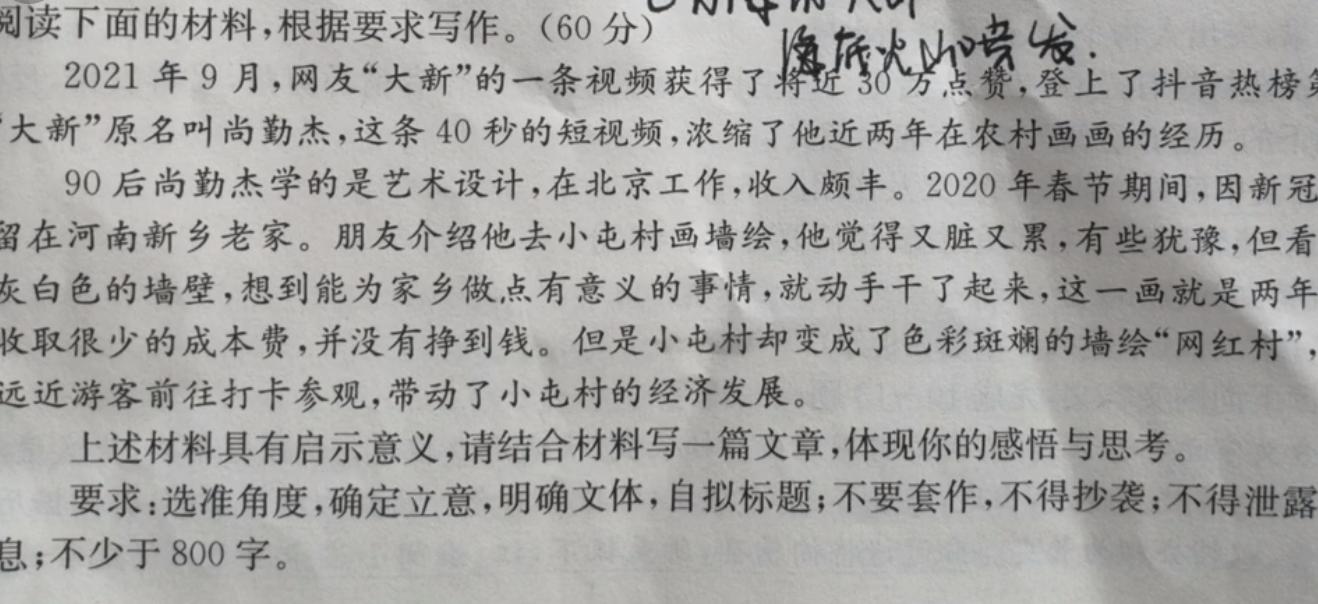 阅读下面的材料,根据要求写作。(60分)
海底火山喷发.
2021年9月,网友“大新”的一条视频获得了将近30万点赞,登上了抖音热榜第
“大新”原名叫尚勤杰,这条40秒的短视频,浓缩了他近两年在农村画画的经历。
90后尚勤杰学的是艺术设计,在北京工作,收入颇丰。2020年春节期间,因新冠
留在河南新乡老家。朋友介绍他去小屯村画墙绘,他觉得又脏又累,有些犹豫,但看
灰白色的墙壁,想到能为家乡做点有意义的事情,就动手干了起来,这一画就是两年
收取很少的成本费,并没有挣到钱。但是小屯村却变成了色彩斑斓的墙绘“网红村”,
远近游客前往打卡参观,带动了小屯村的经济发展。
上述材料具有启示意义,请结合材料写一篇文章,体现你的感悟与思考。
要求:选准角度,确定立意,明确文体,自拟标题;不要套作,不得抄袭;不得泄露
息;不少于800字。